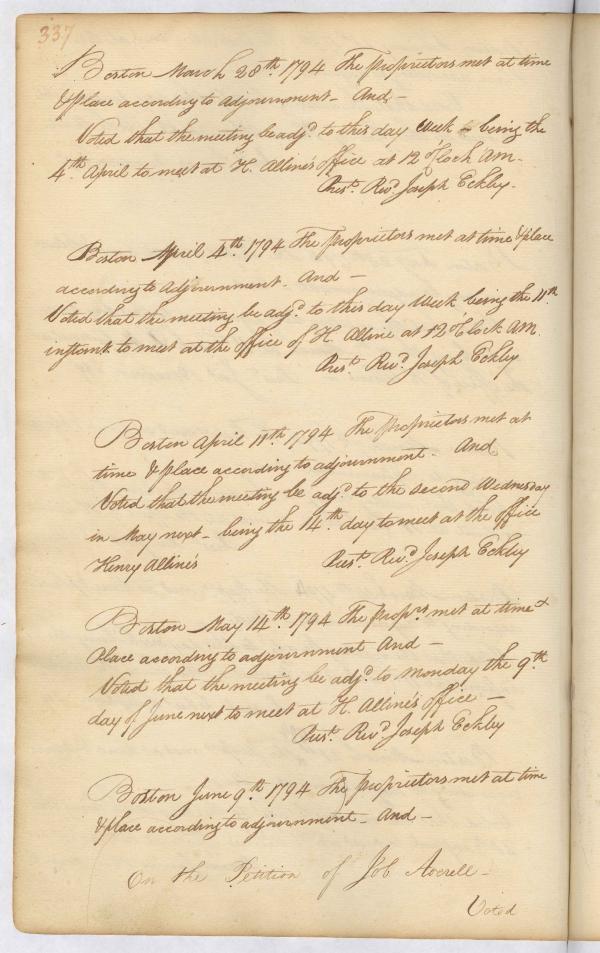 337
Boston March 28th 1794 The Proprietors met at time
& place according to adjournment - And -
Voted that the meeting be adjd to this day week - being the
4th April to meet at H. Alline's office at 12 o'Clock AM.
Prest. Revd Joseph Eckley.
Boston April 4th 1794 The Proprietors met at time & place
according to adjournment - And -
Voted that the meeting be adjd to this day Week being the 11th
instant to meet at the office of H. Alline at 12 o'Clock AM.
Prest. Revd Joseph Eckley
Boston April 11th 1794 The Proprietors met at
time & place according to adjournment - And
Voted that the meeting be adjd to the second Wednesday
in May next - being the 14th day to meet at the office
Henry Alline's Prest. Revd Joseph Eckley
Boston May 14th 1794 The Proprs met at time &
Place according to adjournment And -
Voted that the meeting be adjd to Monday the 9th
day of June next to meet at H. Alline's office -
Prest. Revd Joseph Eckley
Boston June 9th 1794 The Proprietors met at time
& place according to adjournment - And -
On the Petition of Job Averell -
Voted